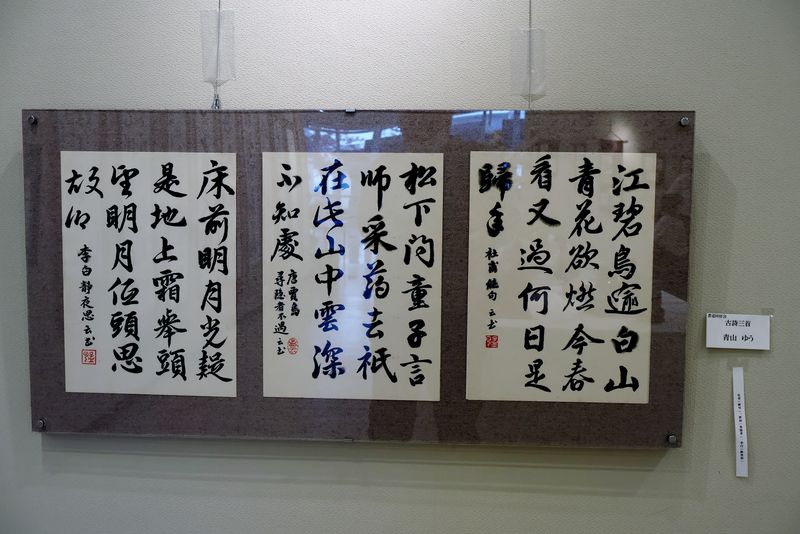 江碧鳥逾白山
青花欲燃今春
看又過何日是
歸年
杜甫 絶句 云书
松下问童子言
师采药去祇
在此山中雲深
不知處
唐賈島
尋隐者不遇 云书
床前明月光疑
是地上霜举頭
望明月低頭思
故乡
李白静夜思 云书
古詩三首
青山 ゆう